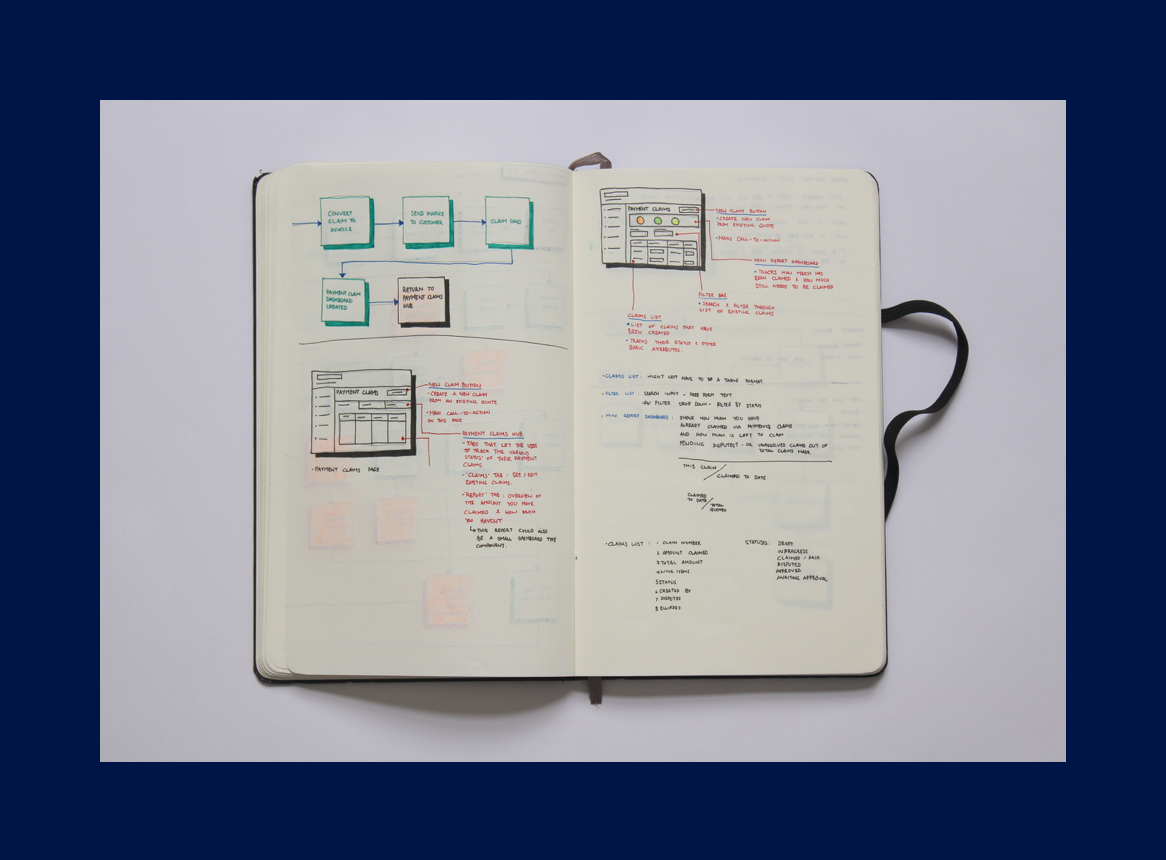 CONVERT
CLAIM TO
INVOICE
SEND INVOICE
TO CUSTOMER
CLAIM PAID
PAYMENT CLAIM
DASHBOARD
UPDATED
RETURN TO
PAYMENT CLAIMS
HUB
PAYMENT CLAIMS
NEW CLAIM BUTTON
• CREATE A NEW CLAIM
FROM AN EXISTING QUOTE
• MAIN CALL-TO-ACTION
ON THIS PAGE
PAYMENT CLAIMS HUB
• TABS THAT LET THE USER
TRACK THE VARIOUS
STATUS' OF THEIR PAYMENT
CLAIMS
• "CLAIMS" TAB: SEE / EDIT
EXISTING CLAIMS.
• "REPORT" TAB: OVERVIEW OF
THE AMOUNT YOU HAVE
CLAIMED & HOW MUCH
YOU HAVEN'T
THIS REPORT COULD ALSO
BE A SMALL DASHBOARD
COMPONENT.
- PAYMENT CLAIMS PAGE
PAYMENT CLAIMS
NEW CLAIM BUTTON
• CREATE NEW CLAIM
FROM EXISTING QUOTE
• MAIN CALL-TO-ACTION
MINI REPORT DASHBOARD
• TRACKS HOW MUCH HAS
BEEN CLAIMED & HOW MUCH
STILL NEEDS TO BE CLAIMED
FILTER BAR
• SEARCH & FILTER THROUGH
LIST OF EXISTING CLAIMS
CLAIMS LIST
• LIST OF CLAIMS THAT HAVE
BEEN CREATED
• TRACKS THEIR STATUS & OTHER
BASIC ATTRIBUTES.
• CLAIMS LIST: MIGHT NOT HAVE TO BE A TABLE FORMAT.
• FILTER LIST: SEARCH INPUT - FREE FORM TEXT
FILTER DROP DOWN - FILTER BY STATUS
• MINI REPORT DASHBOARD: SHOWS HOW MUCH YOU HAVE
ALREADY CLAIMED VIA PAYMENTS CLAIMS
AND HOW MUCH IS LEFT TO CLAIM
PENDING DISPUTES? - OR UNRESOLVED CLAIMS OUT OF
TOTAL CLAIMS MADE.
THIS CLAIM / CLAIMED TO DATE
CLAIMED TO DATE / TOTAL QUOTED
• CLAIMS LIST: 1 CLAIM NUMBER
2 AMOUNT CLAIMED
3 TOTAL AMOUNT
4 LINE ITEMS
5 STATUS
6 CREATED BY
7 DISPUTES
8
STATUSES: DRAFT
IN PROGRESS
CLAIMED / PAID
DISPUTED
APPROVED
AWAITING APPROVAL